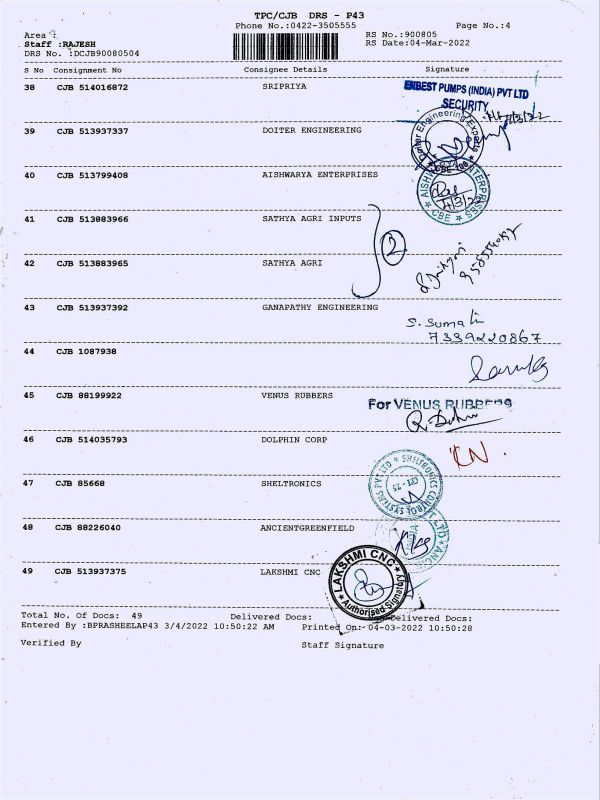 TPC/CJB DRS - P43
Phone No.:0422-3505555 Page No.:4
Area :
RS No.:900805
Staff :RAJESH
RS Date:04-Mar-2022
DRS No. :DCJB90080504
S No Consignment No Consignee Details Signature
38 CJB 514016872 SRIPRIYA
ENBEST PUMPS (INDIA) PVT LTD
SECURITY
39 CJB 513937337 DOITER ENGINEERING
Doiter Engineering Experts
40 CJB 513799408 AISHWARYA ENTERPRISES
AISHWARYA ENTERPRISES
CBE
41 CJB 513883966 SATHYA AGRI INPUTS
2
42 CJB 513883965 SATHYA AGRI
43 CJB 513937392 GANAPATHY ENGINEERING
S. Sumati
7339220867
44 CJB 1087938
45 CJB 88199922 VENUS RUBBERS
For VENUS RUBBERS
46 CJB 514035793 DOLPHIN CORP
47 CJB 85668 SHELTRONICS
SHELTRONICS CONTROL SYSTEMS PVT LTD
48 CJB 88226040 ANCIENTGREENFIELD
49 CJB 513937375 LAKSHMI CNC
LAKSHMI CNC
Authorised Signatory
Total No. Of Docs: 49 Delivered Docs: Non-Delivered Docs:
Entered By :BPRASHEELAP43 3/4/2022 10:50:22 AM Printed On:- 04-03-2022 10:50:28
Verified By Staff Signature